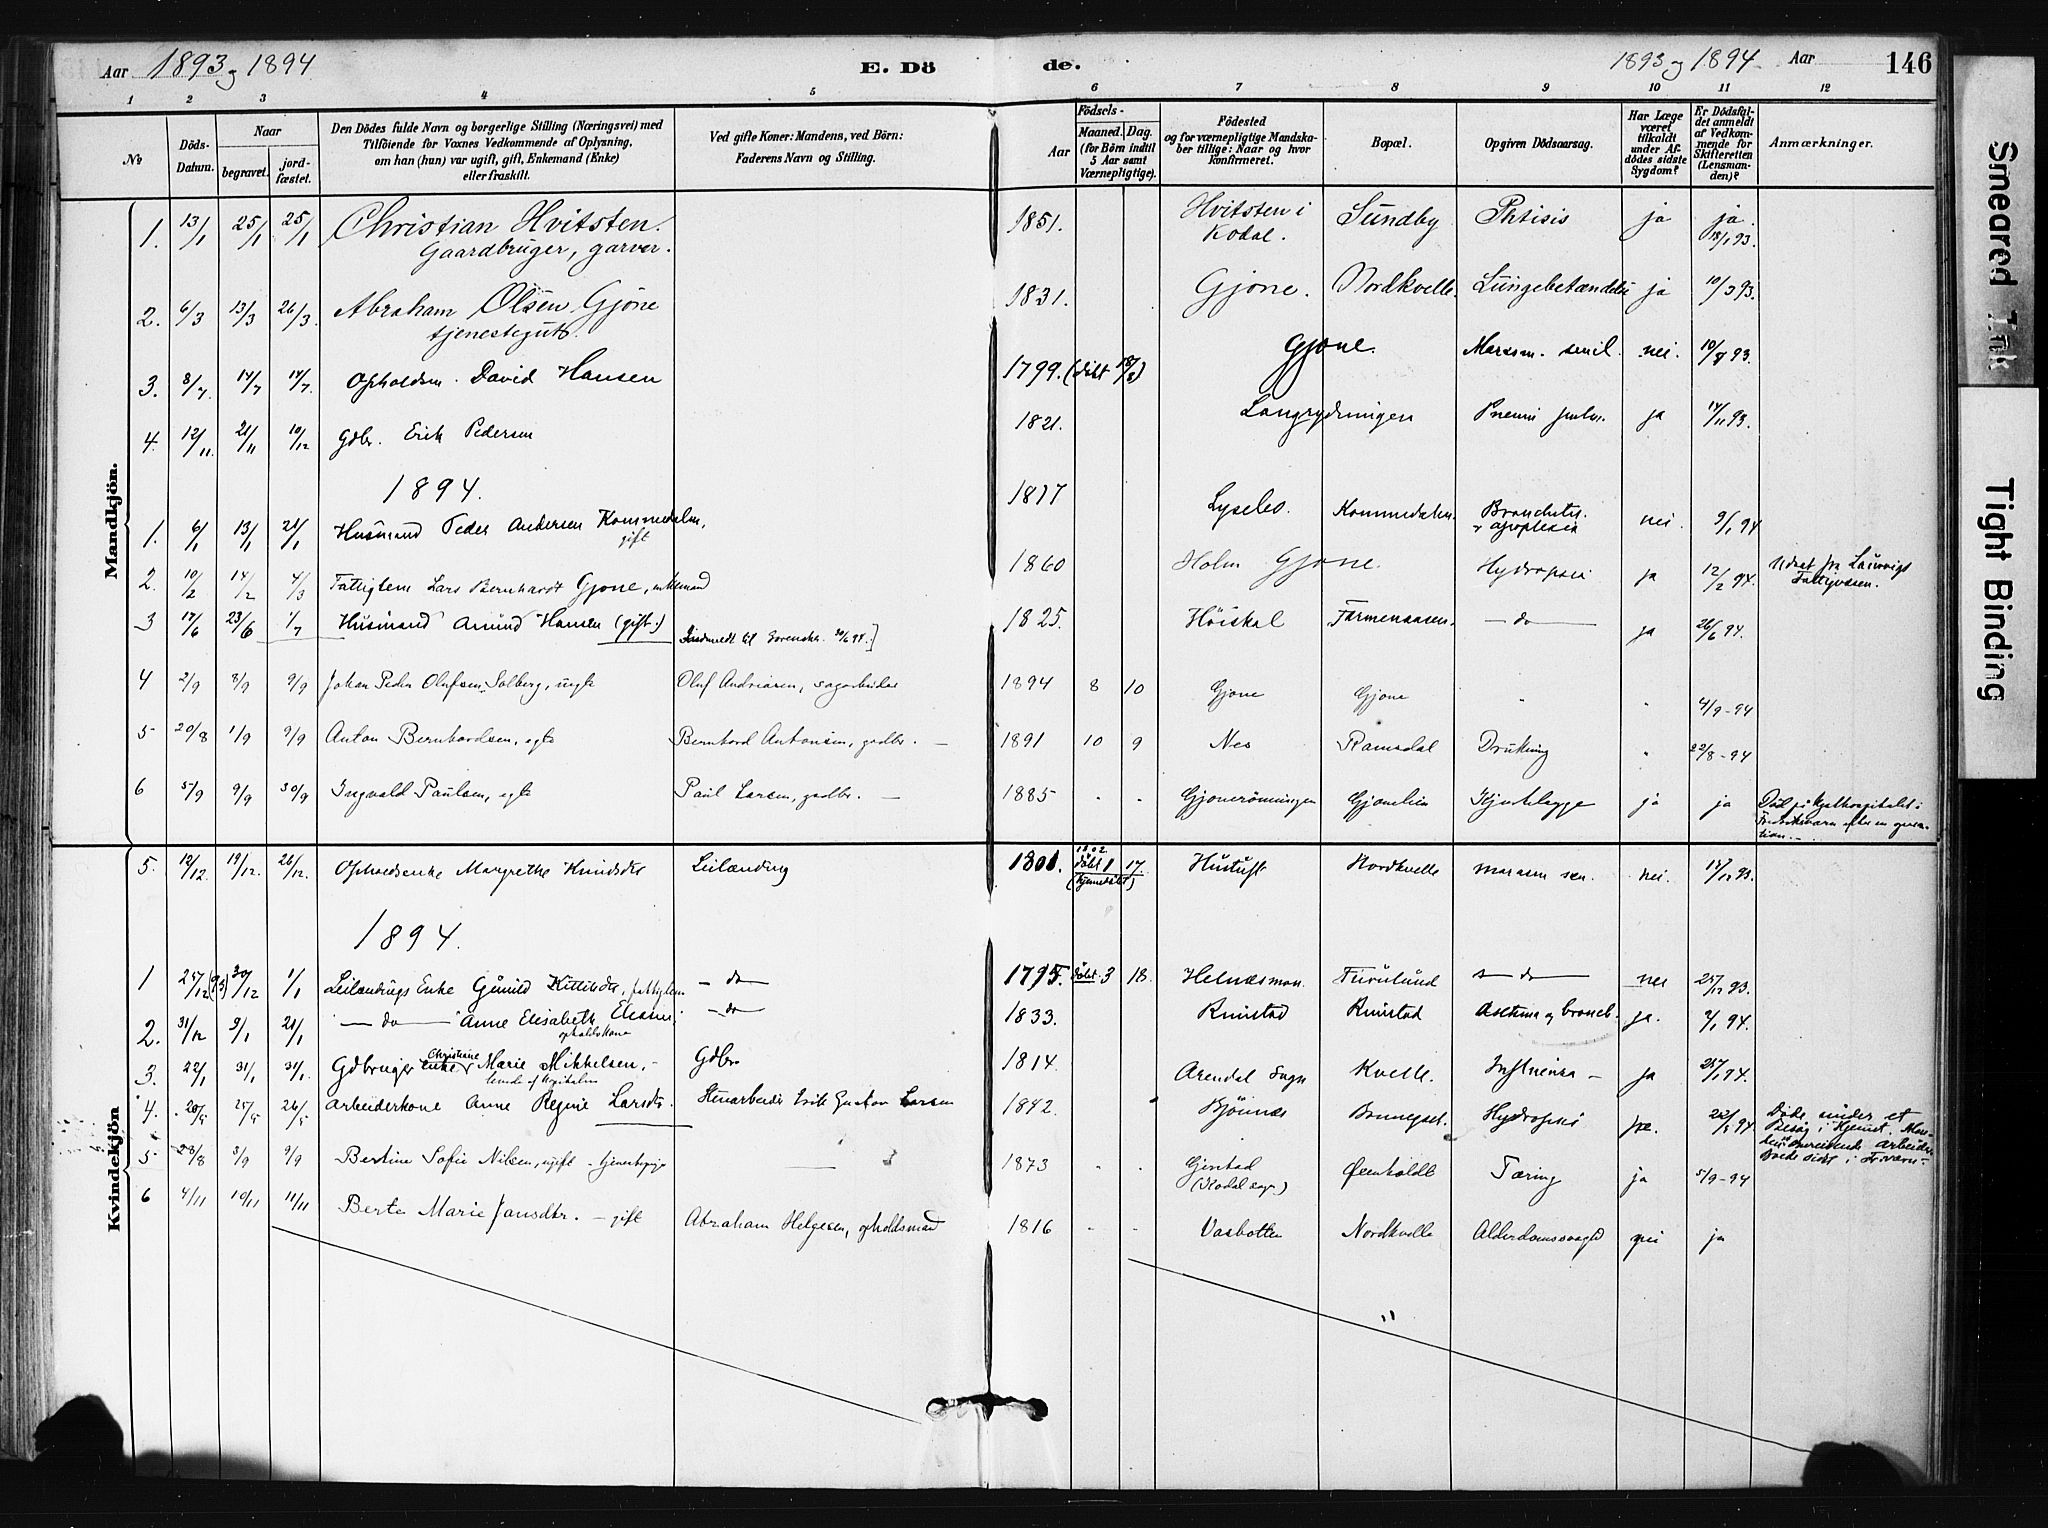 Aar 1893 og 1894 E. Dö de. 1893 og 1894 Aar 146
1 2 3 4 5 6 7 8 9 10 11 12
№ Döds-Datum. Naar begravet. jordfæstet. Den Dödes fulde Navn og borgerlige Stilling (Næringsvei) med Tilföiende for Voxnes Vedkommende af Oplysning, om han (hun) var ugift, gift, Enkemand (Enke) eller fraskilt. Ved gifte Koner: Mandens, ved Börn: Faderens Navn og Stilling. Födsels- Aar Maaned. Dag. (for Börn indtil 5 Aar samt Værnepligtige). Födested og for værnepligtige Mandskaber tillige: Naar og hvor Konfirmeret. Bopæl. Opgiven Dödsaarsag. Har Læge været tilkaldt under Afdödes sidste Sygdom? Er Dödsfaldet anmeldt af Vedkommende for Skifteretten (Lensmanden)? Anmærkninger.
Mandkjön.
1. 13/1 25/1 25/1 Christian Hvitsten. 1851. Hvitsten i Sundby Phtisis ja ja
Gaardbruger, garver. Kodal. 18/1 93.
2. 6/3 13/3 26/3. Abraham Olsen Gjöne 1831. Gjone. Nordkvelle. Lungebetændelse ja 10/3 93.
tjenestegut.
3. 8/7. 14/7 14/7. Opholdsm. David Hansen 1799. (döbt 18/8) Gjone. Marasm. senil. nei. 93.
4. 12/11. 21/11 10/12 Gdbr. Erik Pedersen 1821. Langrydningen ja 14/11 93.
1894.
1. 6/1 13/1 21/1 Husmand Peder Andersen Kommedalen, 1817 Lysebo. Kommedalen. nei. 9/1 94
gift apoplexia
2. 10/2 14/2 4/3 Fattiglem Lars Bernhardt Gjone, enkemand 1860 Holm Gjone. Hydropsis ja 12/2 94. Udsat fra Laurvigs
Fattigvæsen.
3 17/6 23/6 1/7 Husmand Amund Hansen (gift.) 1825. Höiskal Farmenaasen. — do — ja 26/6 94.
4 2/9 8/9 9/9 Johan Peder Olufsen Solberg, uegte Oluf Andriasen, sagarbeider 1894 8 10 Gjone Gjone " " 4/9-94
5 20/8 1/9 9/9 Anton Bernhardsen, egte Bernhard Antonsen, gadbr. — 1891 10 9 Nes Ramsdal Drukning " 22/8-94
6 5/9 9/9 30/9 Ingvald Paulsen, egte Paul Larsen, gadbr. — 1885 - - Gjonerönningen Gjonelien ja ja Död på kysthospitalet i
Fredriksværn efter en opera-
tion.-
Kvindekjön
5. 12/12. 19/12. 26/12. Opholdsenke Margrethe Knudsdtr Leilænding 1801. 1802. döbt 1 17. (hjemedöbt) Hustuft Nordkvelle marasm sen. nei. 14/12 93.
1894.
1 25/12 (93) 30/12 1/1 Leilændings Enke Gunild Kittilsdtr, fattiglem — do — 1795. döbt 3 18. Helnæsmon Furulund — do — nei 25/12 93.
2. 31/12 9/1 21/1 — do — Anne Elisabeth — do 1833. Rimstad Rimstad Asthma og bronch. ja. 2/1 94.
opholdskone
3. 22/1 31/1 31/1. Gdbruger enke Christiane Marie Mikkelsen, - Gdbr. 1814. Arendal Sogn Kvelle. Influenza — ja 25/1 94.
4. 20/5 25/5 26/5 Arbeiderkone Anne Regine Larsdtr. Stenarbeider Erik Gustav Larsen 1842. Bjönnes Hydropsis ja. 22/5 94 Döde under et
Besög i Hjemet.
5 28/8 3/9 9/9 Bertine Sofie Nilsen, ugift - tjenestepige — 1873 - - Gjerstad Øenholdt Tæring ja 5/9-94
(Kodal sogn)
6 4/11 10/11 11/11 Berte Marie Jansdtr. - gift Abraham Helgesen, opholdsmand 1816 - - Vasbotten Nordkvelle Alderdomssvaghed nei ja
"
Smeared Ink
Tight Binding